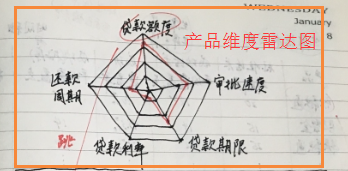 WEDNESDAY
January
8
产品维度雷达图
贷款额度
审批速度
贷款期限
贷款利率
还款
周期